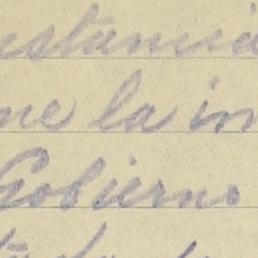 stancia
me la in
Gobierno